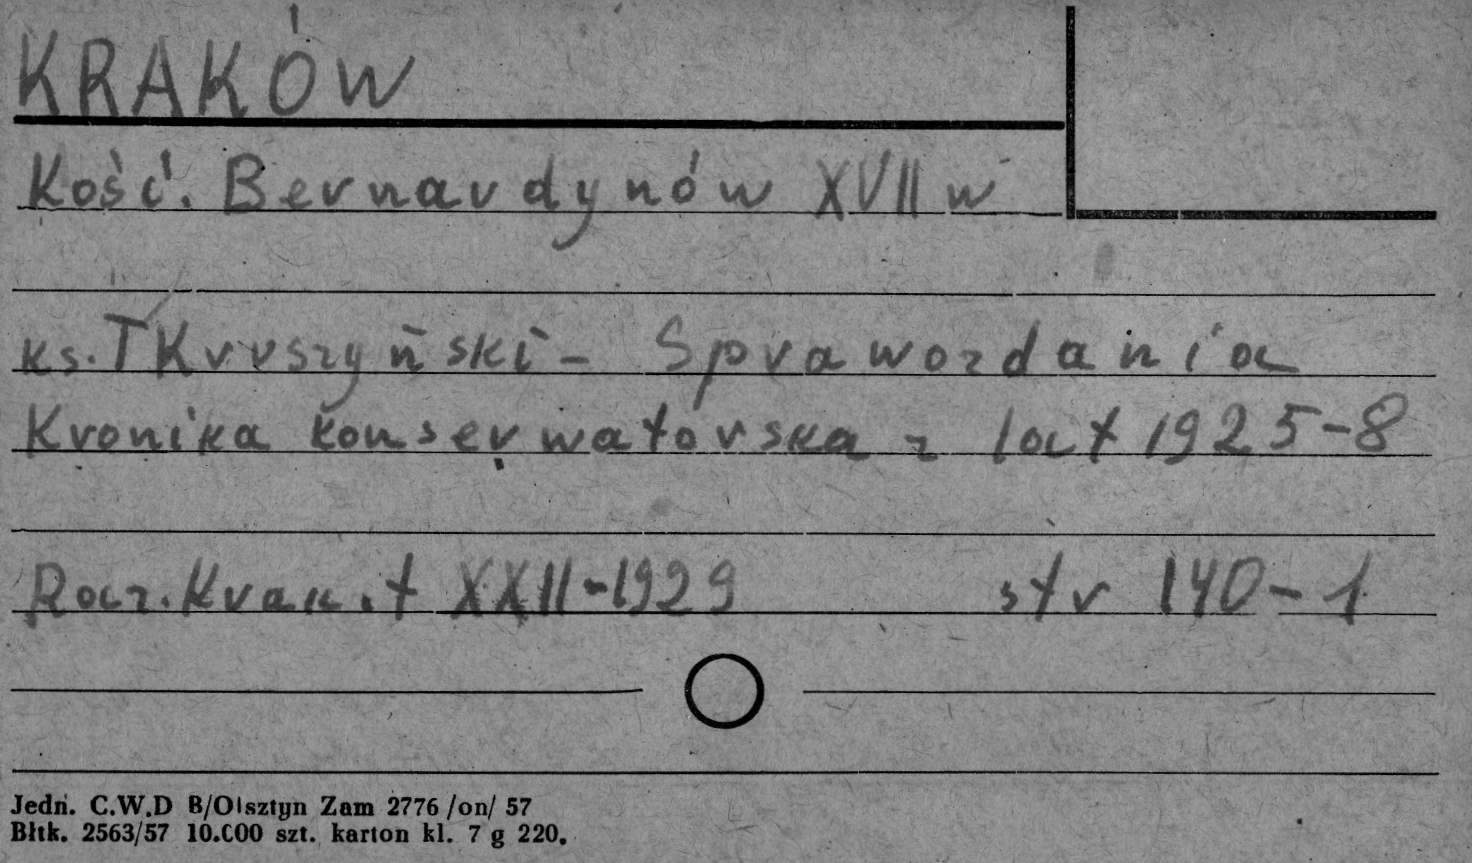 KRAKÓW
Kość. Bernardynów XVII w
ks. T Kruszyński - Sprawozdania
Kronika konserwatorska z lat 1925-8
Rocz. Krak. t XXII-1929 str 140-1
Jedn. C.W.D B/Olsztyn Zam 2776 /on/ 57
Błtk. 2563/57 10.000 szt. karton kl. 7 g 220.